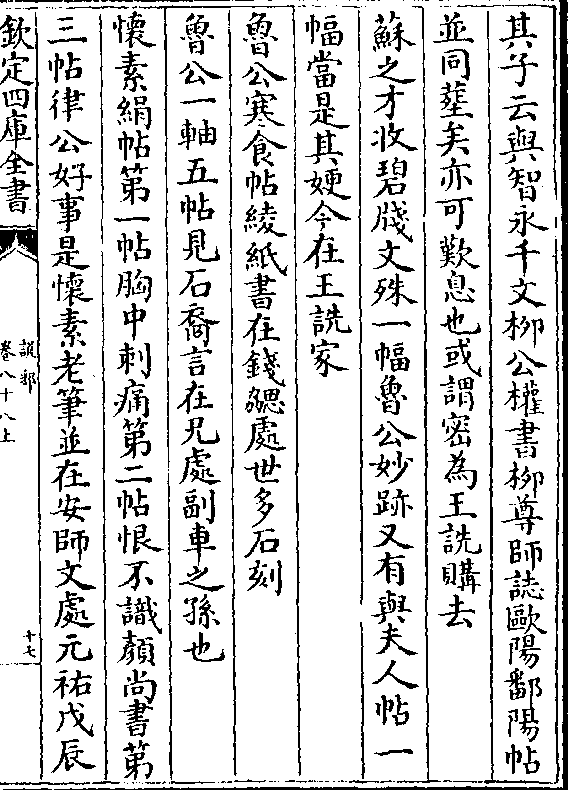 其子云與智永千文柳公權書柳尊師誌歐陽鄱陽帖
並同葬矣亦可歎息也或謂密為王詵購去
蘇之才收碧牋文殊一幅魯公妙跡又有與夫人帖一
幅當是其㛐今在王詵家
魯公寒食帖綾紙書在錢勰處世多石刻
魯公一軸五帖見石裔言在兄處副車之孫也
懷素絹帖第一帖胸中刺痛第二帖恨不識顏尚書第
三帖律公好事是懷素老筆並在安師文處元祐戊辰
欽定四庫全書
說郛
卷八十八上
十七